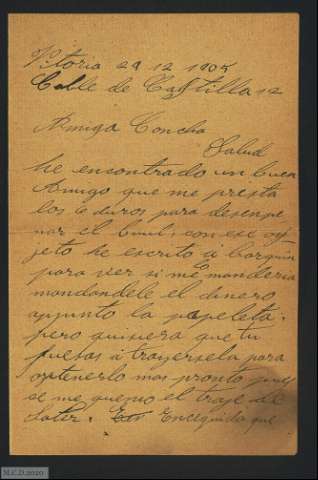 Vitoria 29 12 1905
Calle de Castilla 12
Amiga Concha
Salud
he encontrado un buen
Amigo que me presta
los 6 duros para desenpe
nar el con ese oj
jeto he escrito á
para ver si me lo manderia
mandandele el dinero
apjunto la papeleta.
pero quisiera que tu
fuesas á trayersela para
optenerlo mas pronto pues
se me quemo el traje de
Enceguida que
M.C.D.2020